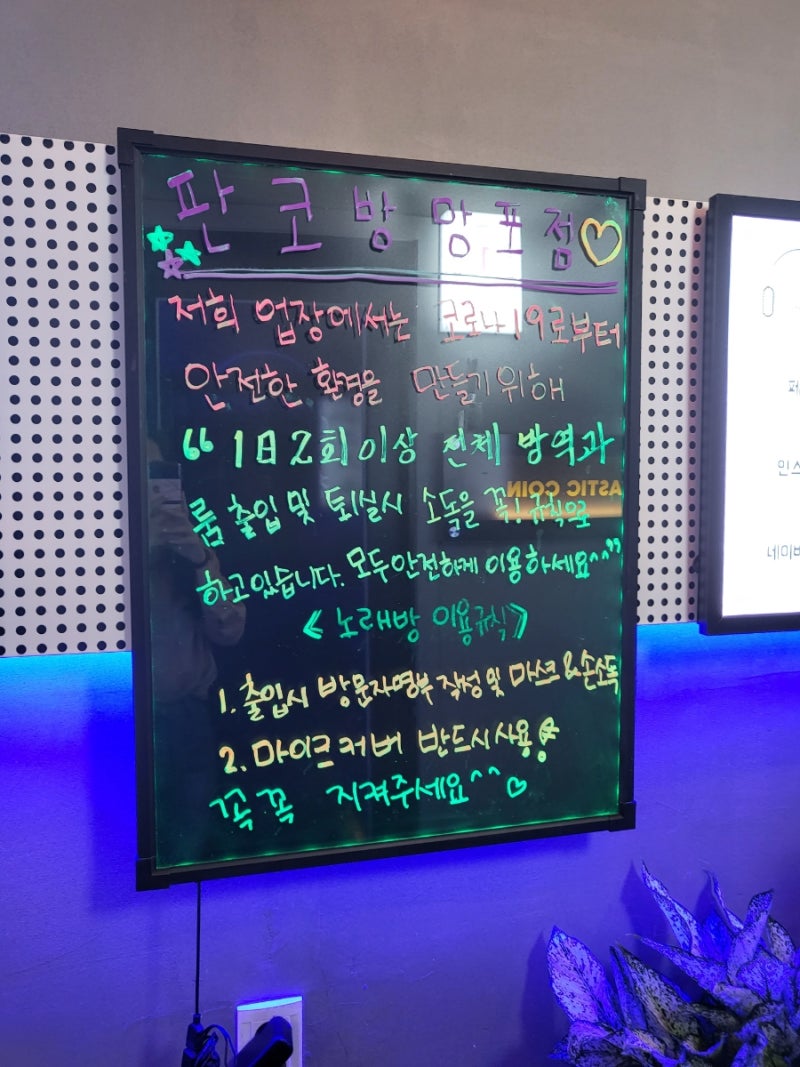 판코방 망포점
저희 업장에서는 코로나19로부터
안전한 환경을 만들기 위해
"1日2회이상 전체 방역과
룸 출입 및 퇴실시 소독을 꼭! 규칙으로
하고있습니다. 모두안전하게 이용하세요^^"
《노래방 이용규칙》
1. 출입시 방문자명부 작성및 마스크&손소독
2. 마이크커버 반드시사용!
꼭꼭 지켜주세요^^♡
ASTIC COIN
페
인스
네이버